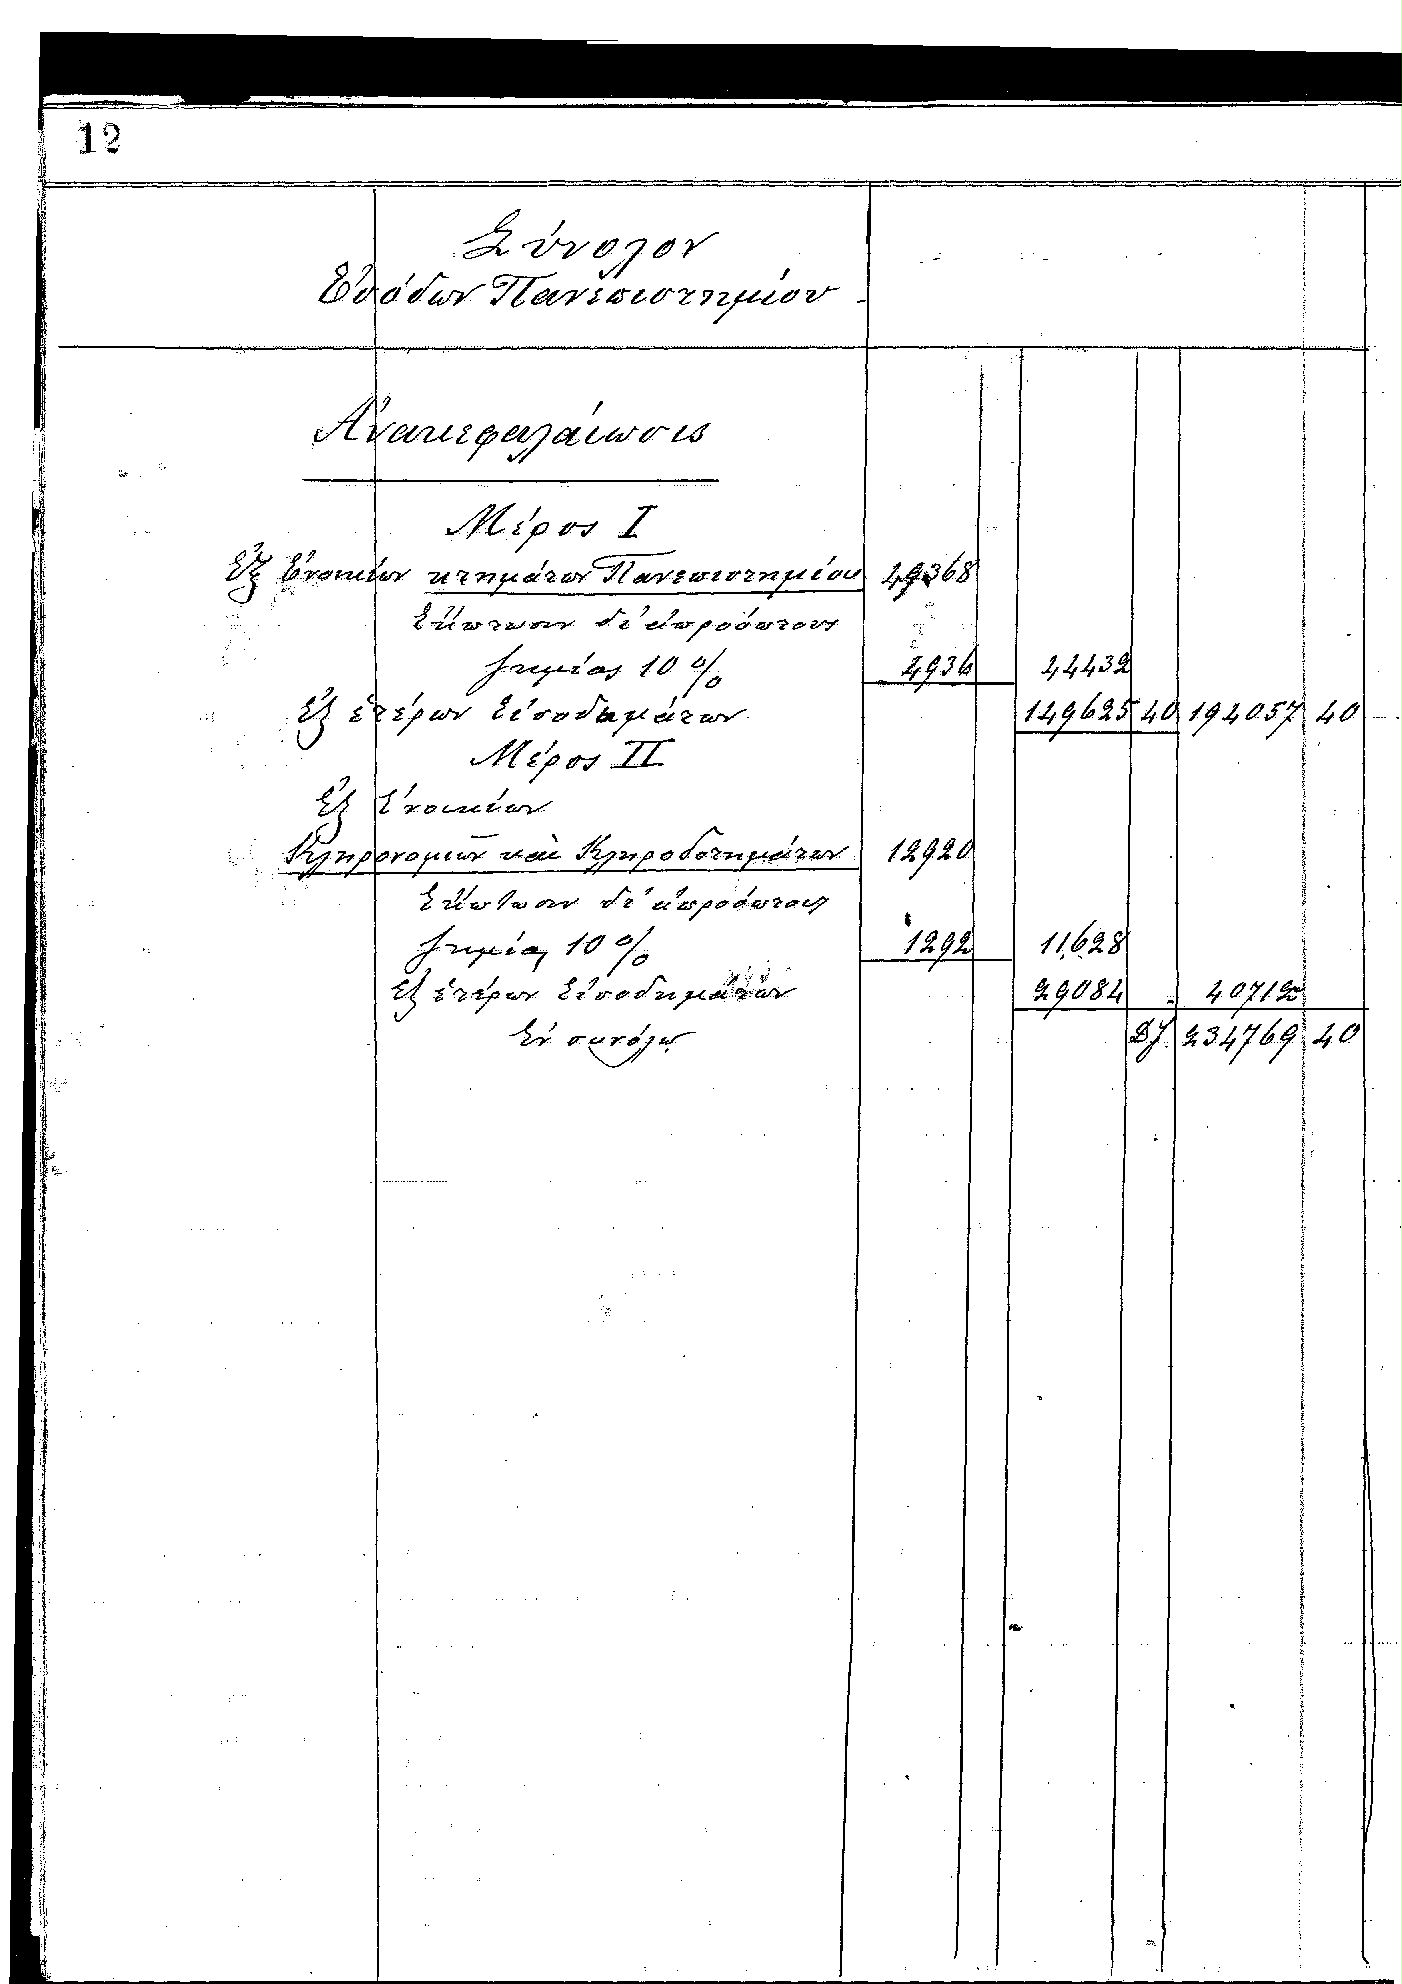 12
Σύνολον
Ἐσόδων Πανεπιστημίου
Ἀνακεφαλαίωσις
Μέρος I
Ἐξ Ἐνοικίων κτημάτων Πανεπιστημίου 49368
Ἔκπτωσιν δι' ἀπροόπτους
ζημίας 10 % 4936 44432
Ἐξ ἑτέρων εἰσοδημάτων 149625 40 194057 40
Μέρος II
Ἐξ Ἐνοικίων
Κληρονομιῶν καὶ Κληροδοτημάτων 12920
Ἔκπτωσιν δι' ἀπροόπτους
ζημίας 10 % 1292 11628
Ἐξ ἑτέρων Εἰσοδημάτων 29084 40712
Ἐν συνόλῳ Δρ 234769 40